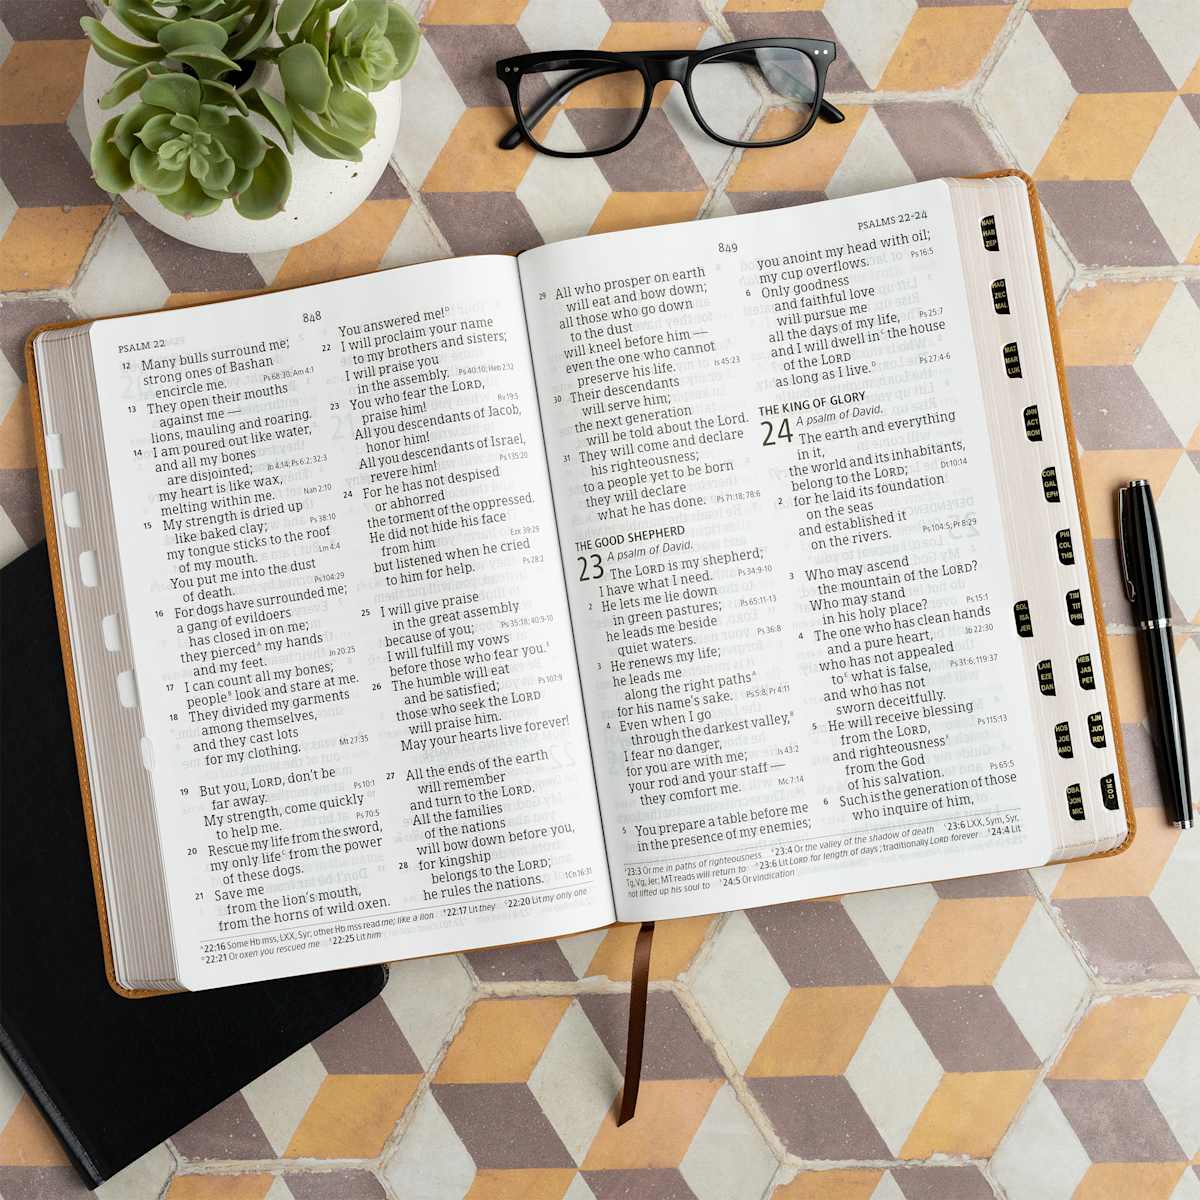 848
PSALM 22
12 Many bulls surround me;
strong ones of Bashan
encircle me. Ps 68:30; Am 4:1
13 They open their mouths
against me —
lions, mauling and roaring.
14 I am poured out like water,
and all my bones
are disjointed; Jb 4:14; Ps 6:2; 32:3
my heart is like wax,
melting within me. Nah 2:10
15 My strength is dried up
like baked clay; Ps 38:10
my tongue sticks to the roof
of my mouth. Lm 4:4
You put me into the dust
of death. Ps 104:29
16 For dogs have surrounded me;
a gang of evildoers
has closed in on me;
they pierced^A my hands
and my feet. Jn 20:25
17 I can count all my bones;
people^B look and stare at me.
18 They divided my garments
among themselves,
and they cast lots
for my clothing. Mt 27:35
19 But you, LORD, don't be
far away. Ps 10:1
My strength, come quickly
to help me. Ps 70:5
20 Rescue my life from the sword,
my only life^C from the power
of these dogs.
21 Save me
from the lion's mouth,
from the horns of wild oxen.
You answered me!^D
22 I will proclaim your name
to my brothers and sisters;
I will praise you
in the assembly. Ps 40:10; Heb 2:12
23 You who fear the LORD,
praise him! Rv 19:5
All you descendants of Jacob,
honor him!
All you descendants of Israel,
revere him! Ps 135:20
24 For he has not despised
or abhorred
the torment of the oppressed.
He did not hide his face
from him Ezk 39:29
but listened when he cried
to him for help. Ps 28:2
25 I will give praise
in the great assembly
because of you; Ps 35:18; 40:9-10
I will fulfill my vows
before those who fear you.^E
26 The humble will eat
and be satisfied; Ps 107:9
those who seek the LORD
will praise him.
May your hearts live forever!
27 All the ends of the earth
will remember
and turn to the LORD.
All the families
of the nations
will bow down before you,
28 for kingship
belongs to the LORD;
he rules the nations. 1Ch 16:31
^A 22:16 Some Hb mss, LXX, Syr; other Hb mss read me; like a lion ^B 22:17 Lit they ^C 22:20 Lit my only one
^D 22:21 Or oxen you rescued me ^E 22:25 Lit him
849
PSALMS 22–24
29 All who prosper on earth
will eat and bow down;
all those who go down
to the dust
will kneel before him —
even the one who cannot
preserve his life. Is 45:23
30 Their descendants
will serve him;
the next generation
will be told about the Lord.
31 They will come and declare
his righteousness;
to a people yet to be born
they will declare
what he has done. Ps 71:18; 78:6
THE GOOD SHEPHERD
23 A psalm of David.
The LORD is my shepherd;
I have what I need. Ps 34:9-10
2 He lets me lie down
in green pastures; Ps 65:11-13
he leads me beside
quiet waters. Ps 36:8
3 He renews my life;
he leads me
along the right paths^A
for his name's sake. Ps 5:8; Pr 4:11
4 Even when I go
through the darkest valley,^B
I fear no danger,
for you are with me; Is 43:2
your rod and your staff —
they comfort me. Mc 7:14
5 You prepare a table before me
in the presence of my enemies;
you anoint my head with oil;
my cup overflows. Ps 16:5
6 Only goodness
and faithful love
will pursue me
all the days of my life, Ps 25:7
and I will dwell in^C the house
of the LORD Ps 27:4-6
as long as I live.^D
THE KING OF GLORY
24 A psalm of David.
The earth and everything
in it,
the world and its inhabitants,
belong to the LORD; Dt 10:14
2 for he laid its foundation
on the seas
and established it
on the rivers. Ps 104:5; Pr 8:29
3 Who may ascend
the mountain of the LORD?
Who may stand
in his holy place? Ps 15:1
4 The one who has clean hands
and a pure heart, Jb 22:30
who has not appealed
to^E what is false, Ps 31:6; 119:37
and who has not
sworn deceitfully.
5 He will receive blessing
from the LORD, Ps 115:13
and righteousness^F
from the God
of his salvation. Ps 65:5
6 Such is the generation of those
who inquire of him,
^A 23:3 Or me in paths of righteousness ^B 23:4 Or the valley of the shadow of death ^C 23:6 LXX, Sym, Syr,
Tg, Vg, Jer; MT reads will return to ^D 23:6 Lit LORD for length of days; traditionally LORD forever ^E 24:4 Lit
not lifted up his soul to ^F 24:5 Or vindication
NAH
HAB
ZEP
HAG
ZEC
MAL
MAT
MAR
LUK
JHN
ACT
ROM
COR
GAL
EPH
PHI
COL
THS
TIM
TIT
PHN
HEB
JAS
PET
1JN
JUD
REV
CONC
SOL
ISA
JER
LAM
EZE
DAN
HOS
JOE
AMO
OBA
JON
MIC